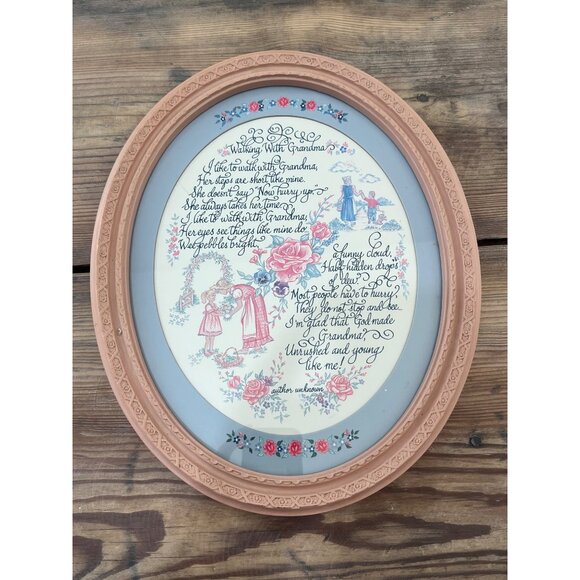 Walking With Grandma
I like to walk with Grandma,
Her steps are short like mine.
She doesn't say "Now hurry up,"
She always takes her time.
I like to walk with Grandma,
Her eyes see things like mine do:
Wee pebbles bright,
a funny cloud,
Half hidden drops
of dew.
Most people have to hurry,
They do not stop and see
I'm glad that God made
Grandma,
Unrushed and young
like me!
author unknown